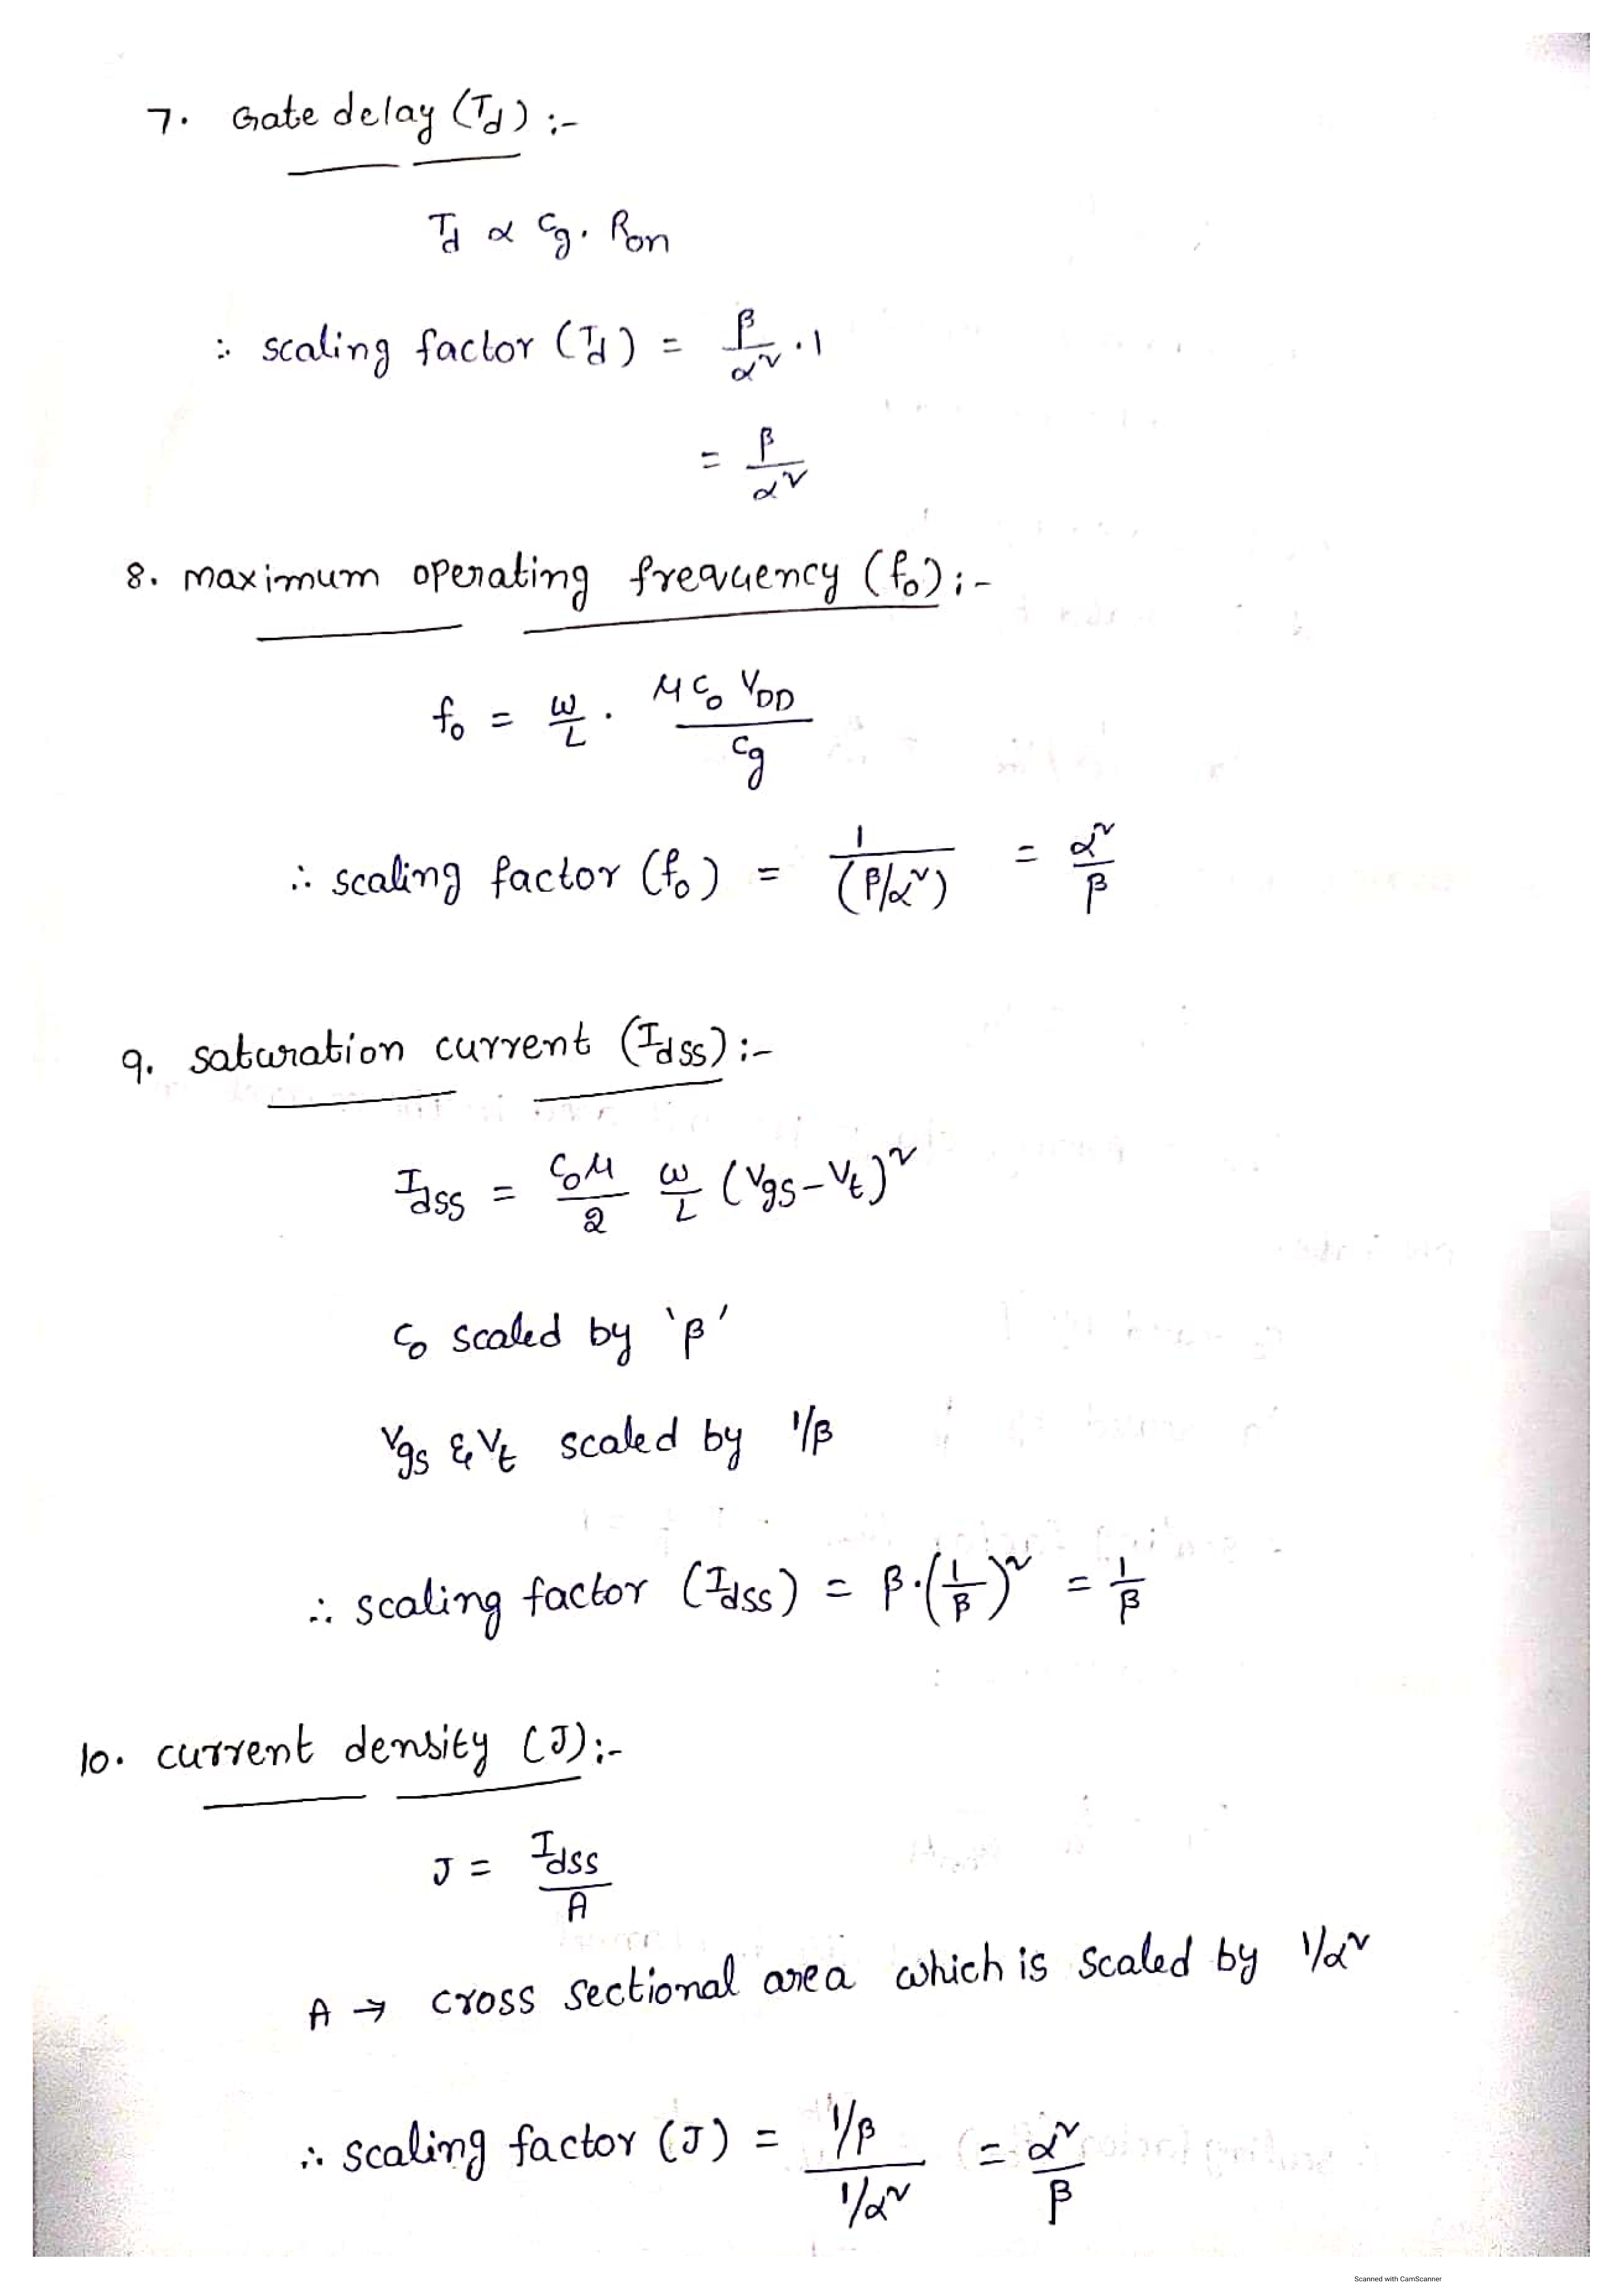 7. Gate delay (Td) :-
Td ∝ Cg. Ron
∴ scaling factor (Td) = β/α² . 1
= β/α²
8. maximum operating frequency (f0) :-
f0 = ω/L . μ C0 VDD / Cg
∴ scaling factor (f0) = 1/(β/α²) = α²/β
9. saturation current (Idss) :-
Idss = C0μ/2 ω/L (Vgs - Vt)²
C0 scaled by 'β'
Vgs & Vt scaled by 1/β
∴ scaling factor (Idss) = β.(1/β)² = 1/β
10. current density (J) :-
J = Idss/A
A → cross sectional area which is scaled by 1/α²
∴ scaling factor (J) = 1/β / 1/α² = α²/β
Scanned with CamScanner